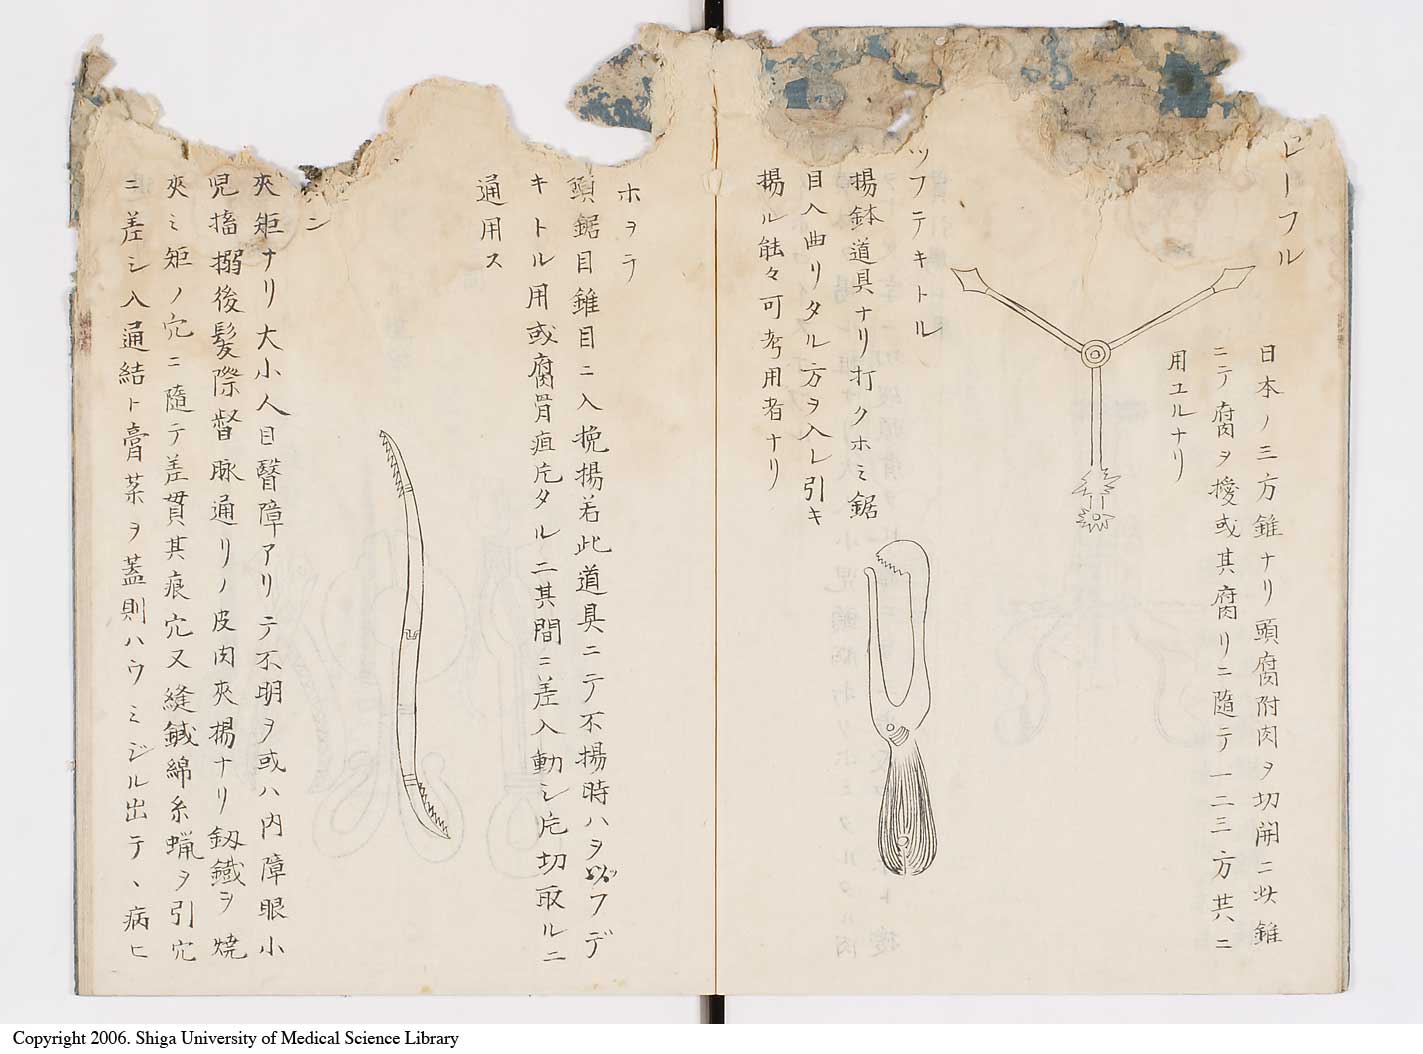 レーフル
日本ノ三方錐ナリ頭腐附肉ヲ切開ニ此錐
ニテ腐ヲ撥或其腐リニ随テ一二三方共ニ
用ユルナリ
ツフテキトル
揚鉢道具ナリ打クホミ鋸
目入曲リタル方ヲ入レ引キ
揚ル能々可考用者ナリ
ホヲテ
頭鋸目錐目ニ入挽揚若此道具ニテ不揚時ハヲツフデ
キトル用或腐骨疽庀タルニ其間ニ差入動シ庀切取ルニ
通用ス
ン
夾矩ナリ大小人目瞖障アリテ不明ヲ或ハ内障眼小
児搐搦後髪際督脉通リノ皮肉夾揚ナリ釼鐡ヲ焼
夾ミ矩ノ穴ニ随テ差貫其痕穴又縫鍼綿糸蝋ヲ引穴
ニ差シ入通結ト膏薬ヲ蓋則ハウミジル出テ、病ヒ
Copyright 2006. Shiga University of Medical Science Library